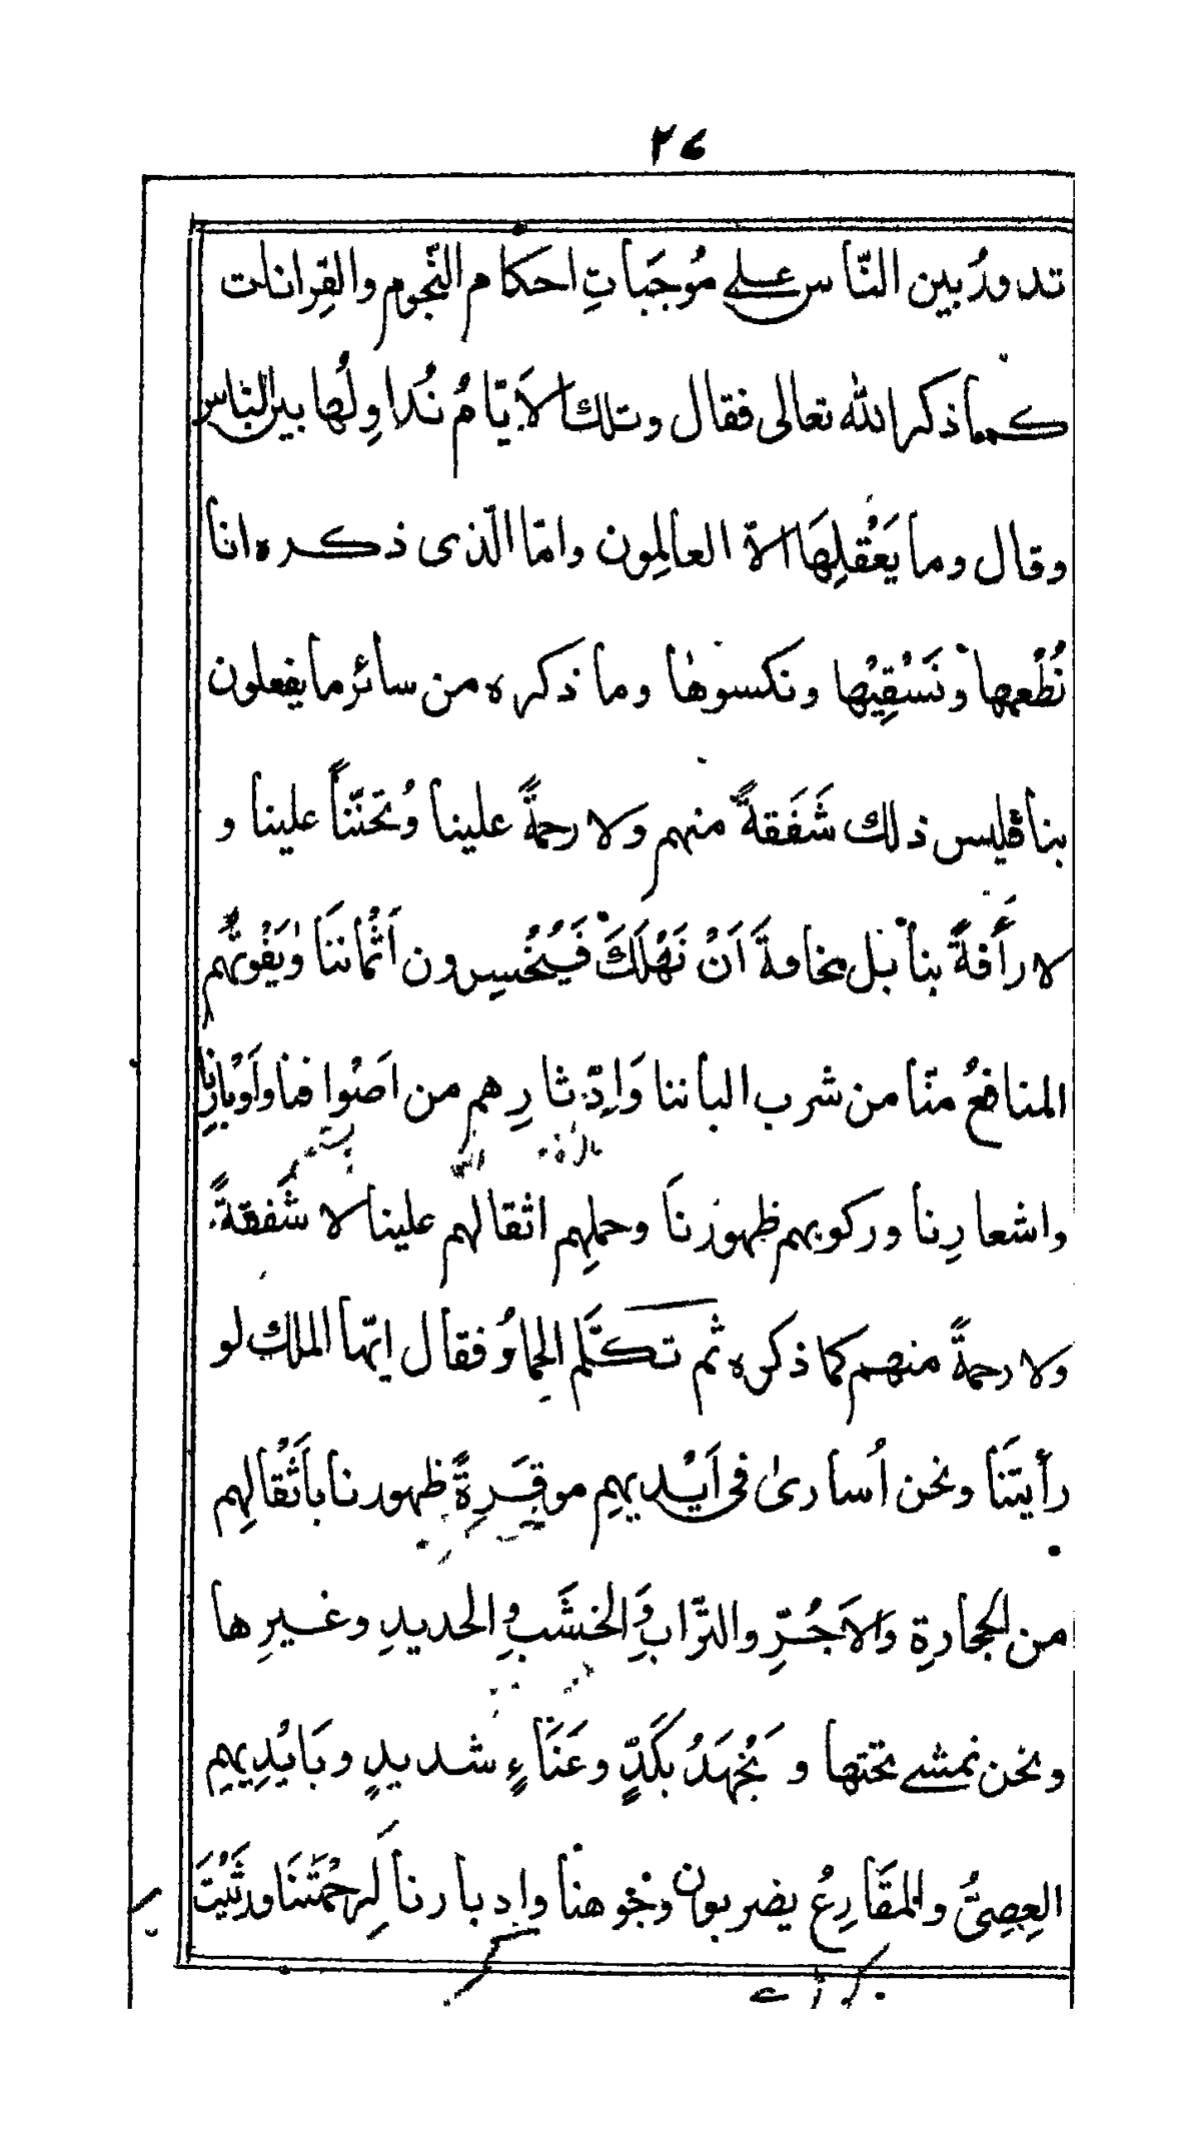 ٢٤
تدورُ بين النّاس على مُوجَباتِ احكام النّجوم والقِرانات
كما ذكر الله تعالى فقال وتلك الايّامُ نُداوِلُها بين الناس
وقال وما يَعْقِلِهَا الّا العالِمون وامّا الّذى ذكره انا
نُطْعمها ونَسْقِيْها ونكسوها وما ذكره من سائر ما يفعلون
بنا فليس ذلك شَفَقةً منهم ولا رحمةً علينا وتَحَنّناً علينا و
لا رأفةً بنا بل مخافةَ اَنْ نَهْلَكَ فَيُخْسِرون اَثْماننَا ويَفُوتُهم
المنافعُ منّا من شرب البانِنا وَادِّثارِهم من اصْوافنا واَوْبارِنا
واشعارِنا وركوبهم ظهورَنا وحملِهم اثقالهم علينا لا شَفقةً
ولا رحمةً منهم كما ذكره ثم تكلّم الحِمارُ فقال ايّها الملك لو
رأيتَنا ونحن اُسارىٰ فى اَيْديهِم موقَرةً ظهورنا باَثْقالهِم
من الحجارةِ والاَجُرِّ والتّرابِ والخشَبِ والحديدِ وغيرِها
ونحن نمشى تحتها و نَجْهَدُ بكَدٍّ وعَنَاءٍ شديدٍ وبَايْدِيهِم
العِصِىُّ والمقَارِعُ يضربون وُجُوهنا وادبارنا لَرحمْتَنَا ورَثَيْتَ